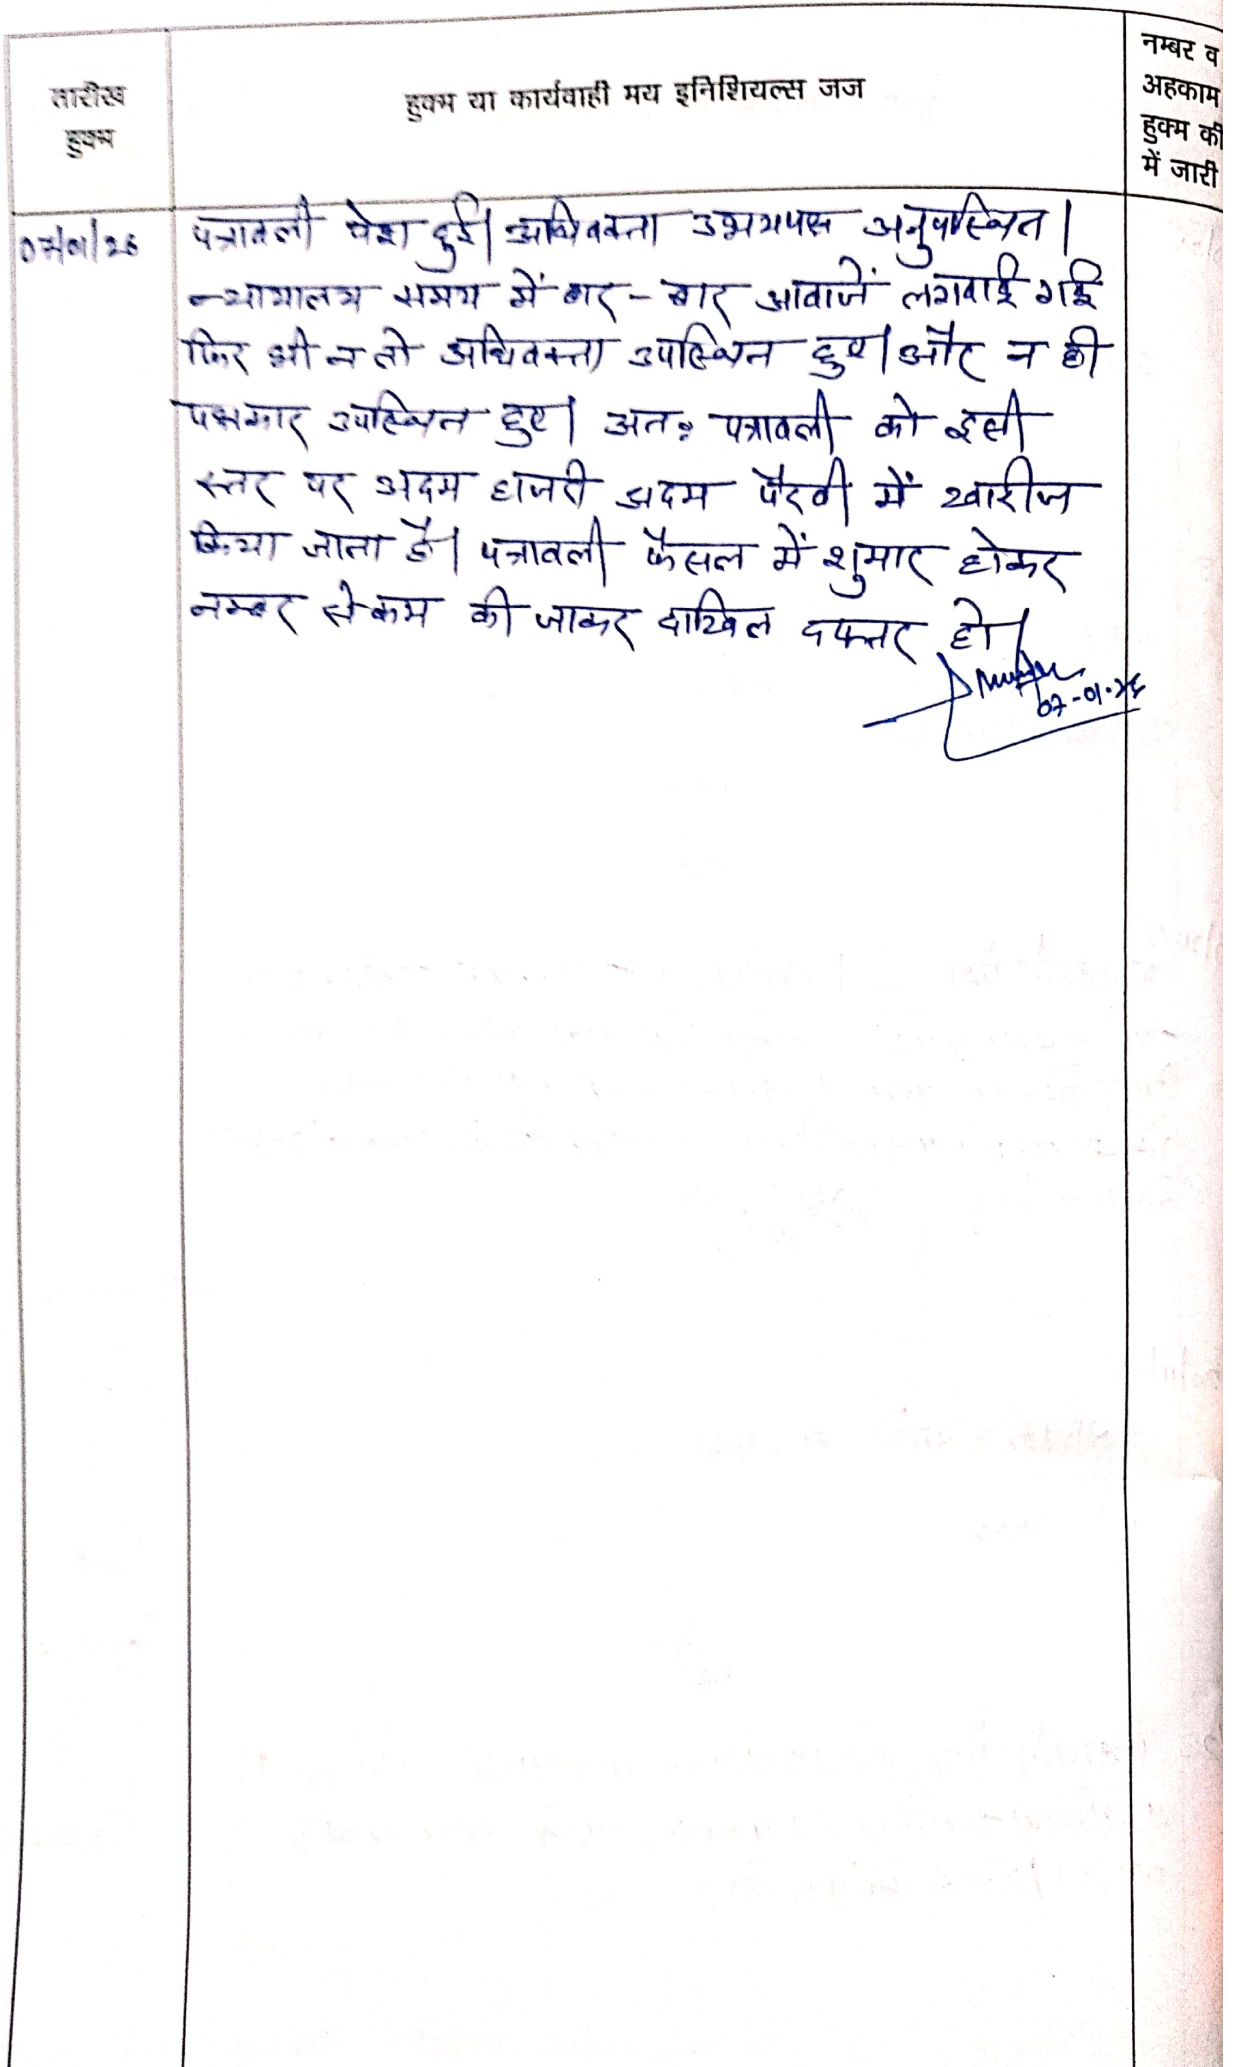 तारीख
हुक्म
हुक्म या कार्यवाही मय इनिशियल्स जज
नम्बर व
अहकाम
हुक्म की
में जारी
07/01/26
पत्रावली पेश हुई। अधिवक्ता उभयपक्ष अनुपस्थित।
न्यायालय समय में बार - बार आवाजें लगवाई गई
फिर भी न तो अधिवक्ता उपस्थित हुए। और न ही
पक्षकार उपस्थित हुए। अतः पत्रावली को इसी
स्तर पर अदम हाजरी अदम पैरवी में खारीज
किया जाता है। पत्रावली फैसल में शुमार होकर
नम्बर से कम की जाकर दाखिल दफ्तर हो।
07-01-26